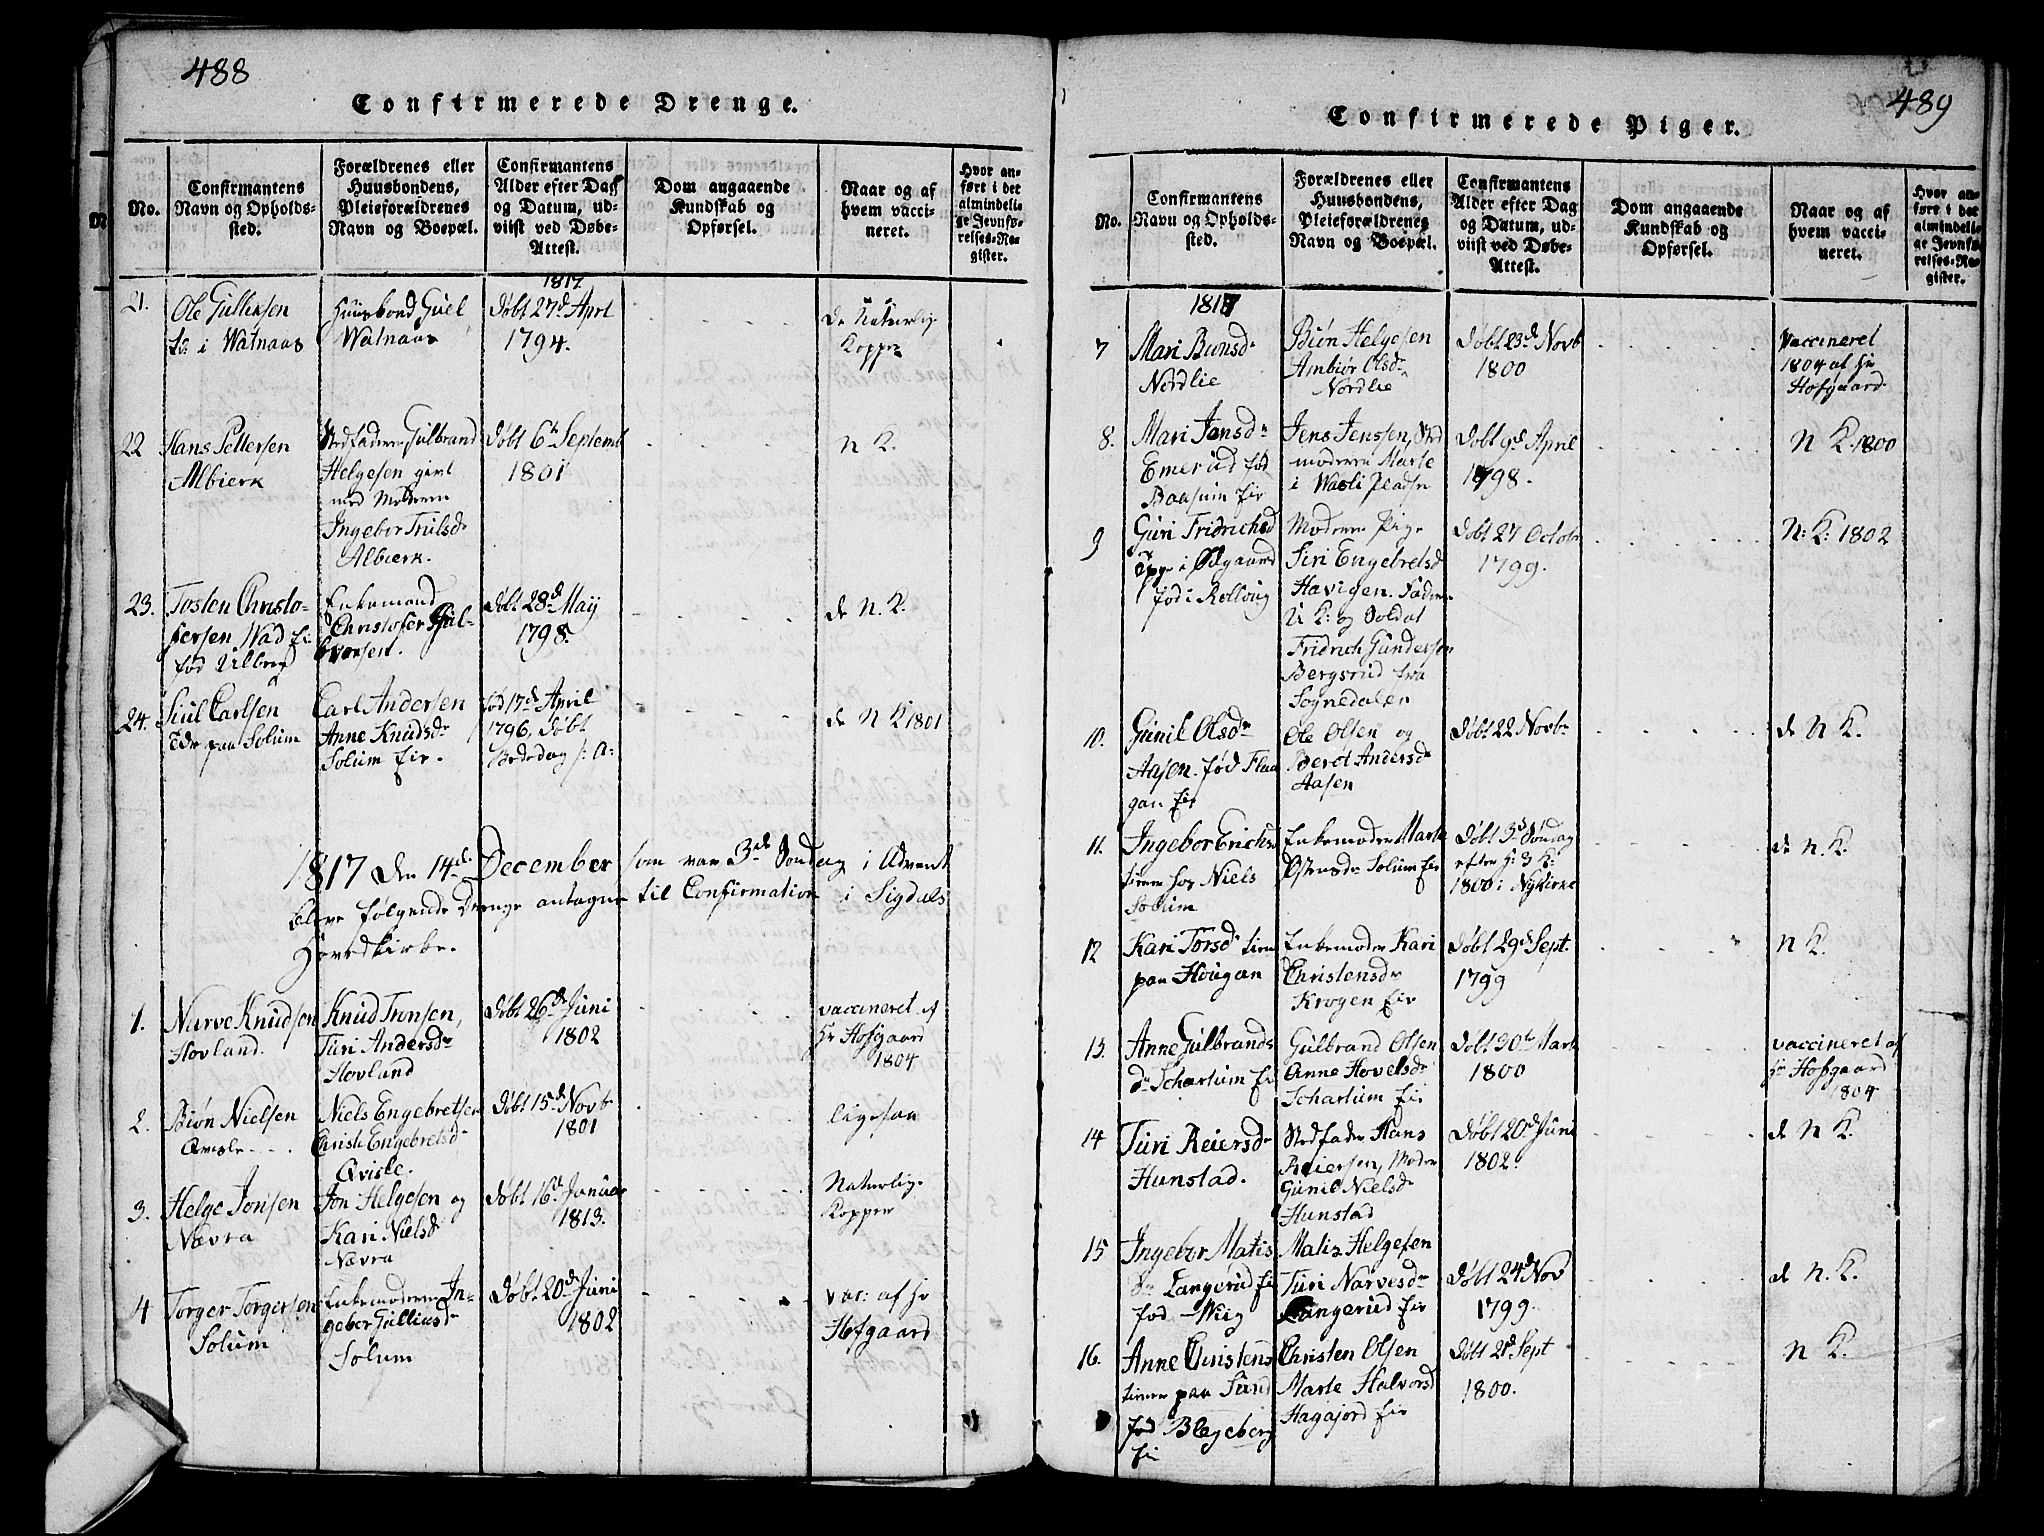 488
Confirmerede Drenge.
No.
Confirmantens
Navn og Opholds-
sted.
Forældrenes eller
Huusbondens,
Pleieforældrenes
Navn og Boepæl.
Confirmantens
Alder efter Dag
og Datum, ud-
viist ved Døbe-
Attest.
Dom angaaende
Kundskab og
Opførsel.
Naar og af
hvem vacci-
neret.
Hvor an-
ført i det
almindeli-
ge Jevnfø-
relses-Re-
gister.
1817
21.
Ole Gullexsen
i Watnaas
Huusbond Guel
Watnaas
Døbt 27d Aprl
1794.
de Naturlige
Kopper
22
Hans Pettersen
Albierk
Stedfaderen Gulbrand
Helgesen givt
med Moderen
Ingebor Trulsd.
Albierk.
Døbt 6te Septemb
1801
N K.
23.
Tosten Christo-
fersen Wad ei
fød Ulberg
Enkemand
Christofer Gul-
bransen.
Døbt 28d. May
1798.
de N. K.
24.
Siul Carlsen
paa Solum
Carl Andersen
Anne Knudsdr
Solum eie.
fød 17de April
1796, døbt
Bededag s: A:
de N K 1801
1817 den 14de December som var 3de Søndag i Advent
bleve følgende Drenge antagne til Confirmation i Sigdals
Hovedkirke.
1.
Narve Knudsen
Hovland.
Knud Tronsen,
Turi Andersdr
Hovland
Døbt 26de Juni
1802
vaccineret af
Hr Hofgaard
1804
2.
Biøn Nielsen
Qvisle
Niels Engebretsen
Christi Engebretsd.
Qvisle.
Døbt 15d. Novb
1801
ligesaa
3.
Helge Jonsen
Nævra
Jon Helgesen og
Kari Nielsd
Nævra
Døbt 16d. Januar
1813.
Naturlige
Kopper
4
Torger Torgersen
Solum
Enkemoderen In-
gebor Gulliusdr
Solum
Døbt 20de Juni
1802
vac: af Hr
Hofgaard
489
Confirmerede Piger.
No.
Confirmantens
Navn og Opholds-
sted.
Forældrenes eller
Huusbondens,
Pleieforældrenes
Navn og Boepæl.
Confirmantens
Alder efter Dag
og Datum, ud-
viist ved Døbe-
Attest.
Dom angaaende
Kundskab og
Opførsel.
Naar og af
hvem vacci-
neret.
Hvor an-
ført i det
almindeli-
ge Jevnfø-
relses-Re-
gister.
1817
7
Mari Biønsd.
Nordlie
Biøn Helgesen
Ambiør Olsdr
Nordlie
Døbt 23d Novb
1800
Vaccineret
1804 af Hr
Hofgaard.
8.
Mari Jensdr
Emerud fød
Baasum eie
Jens Jenssen, Sted
moderen Marte
i Wasli Pladsen
Døbt 9d. April
1798.
N K. 1800
9
Guri Fridrichsd
Pige i Ødgaard
fød i Rolloug
Moderen Pige
Siri Engebretsd
Havigen. Faderen
U K: og Soldat
Fridrich Gundersen
Bergsrud fra
Sognedalen
Døbt 27 Octobr
1799.
N: K: 1802
10.
Gunil Olsdr
Aasen. fød Flaa
gan eie
Ole Olsen og
Berot Andersdr
Aasen
Døbt 22 Novbr
de N K.
11.
Ingebor Erichsd
tiener hos Niels
Solum
Enkemoder Marte
Ostensdr Solum Eie
Døbt 3d Søndag
efter H: 3 K:
1800 i Nykirke
de N. K.
12
Kari Torsdr tiener
paa Hougan
Enkemoder Kari
Christensdr
Krogen Eie
Døbt 29d Sept.
1799
N K.
13.
Anne Gulbrands
dr Scharlium ei
Gulbrand Olsen
Anne Hovelsdr
Scharlium Eie
Døbt 30te Marts
1800
vaccineret af
Hr Hofgaard
1804
14
Turi Reiersdr
Hunstad.
Stedfader Hans
Reiersen, Moder
Gunil Nielsdr
Hunstad
Døbt 20de Juni
1802.
de N K.
15
Ingebor Matis
dr Langerud ei
fød Wiig
Matis Helgesen
Turi Narvesdr
Langerud Eie
Døbt 24d Nov
1799.
de N. K.
16.
Anne Christens
tiener paa Lund
fød Blegeberg
ei
Christen Olsen
Marte Halvorsd
Hagajord Eie
Døbt 21d Sept
1800.
N K.